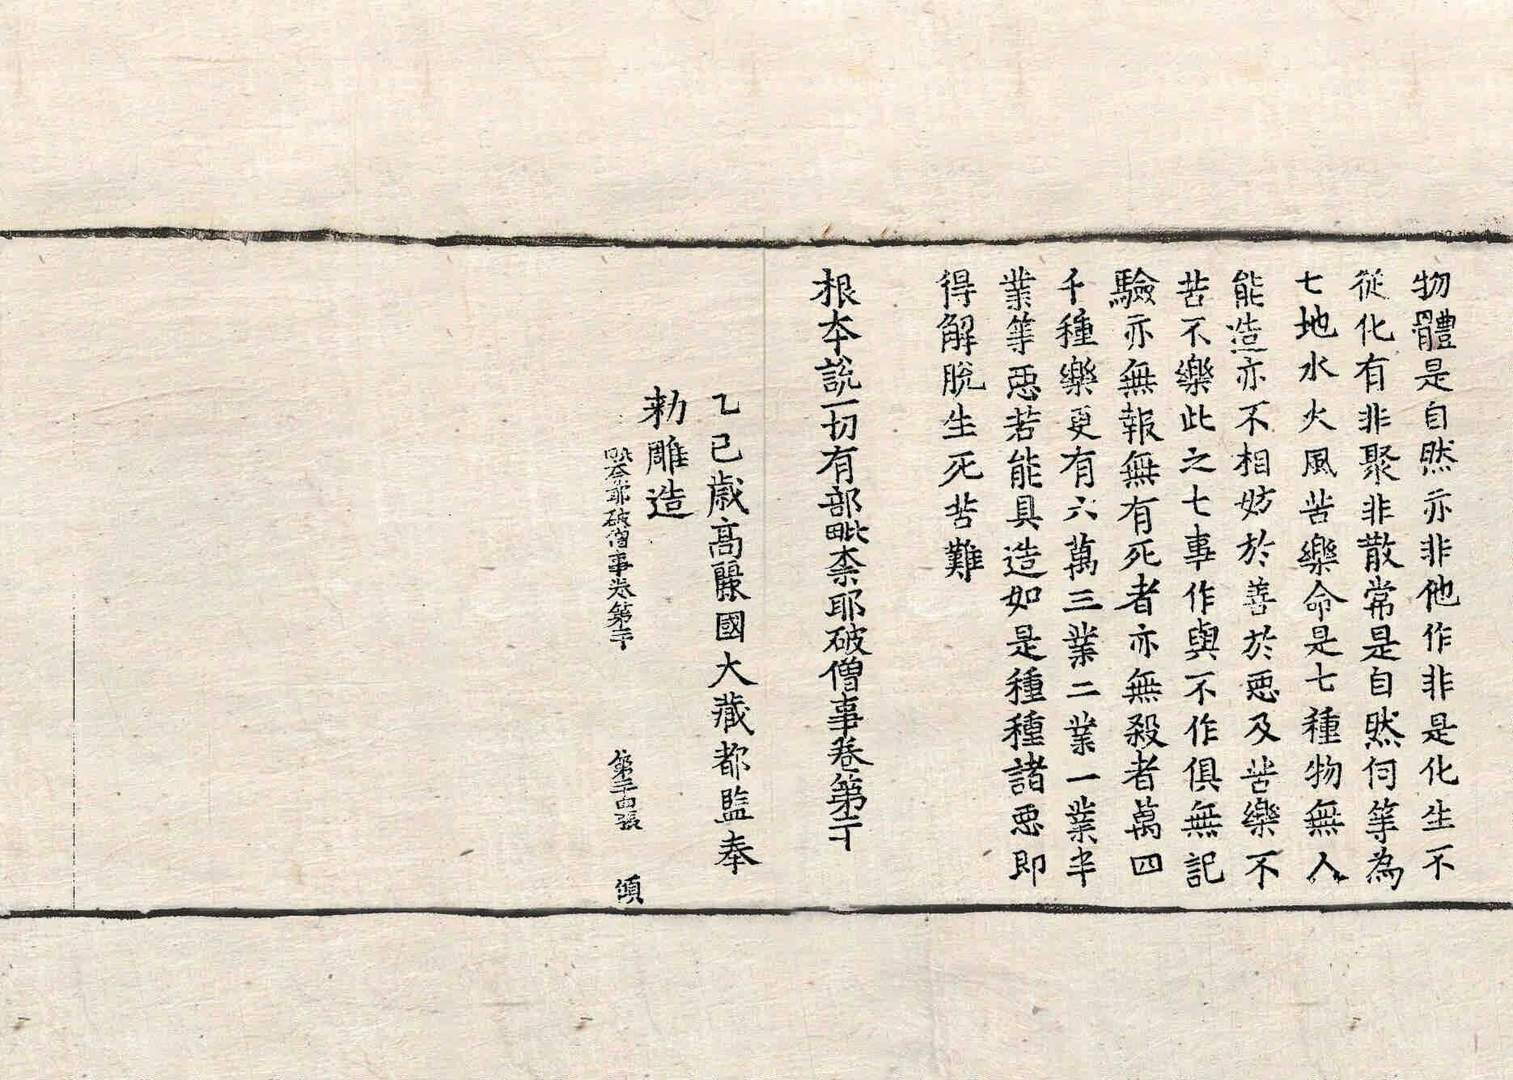 物體是自然亦非他作非是化生不
從化有非聚非散常是自然何等為
七地水火風苦樂命是七種物無人
能造亦不相妨於善於惡及苦樂不
苦不樂此之七事作與不作俱無記
驗亦無報無有死者亦無殺者萬四
千種樂更有六萬三業二業一業半
業等惡若能具造如是種種諸惡即
得解脫生死苦難
根本說一切有部毗柰耶破僧事卷第二十
乙巳歲高麗國大藏都監奉
勅雕造
毗柰耶破僧事卷第二十 第二十四張 頌